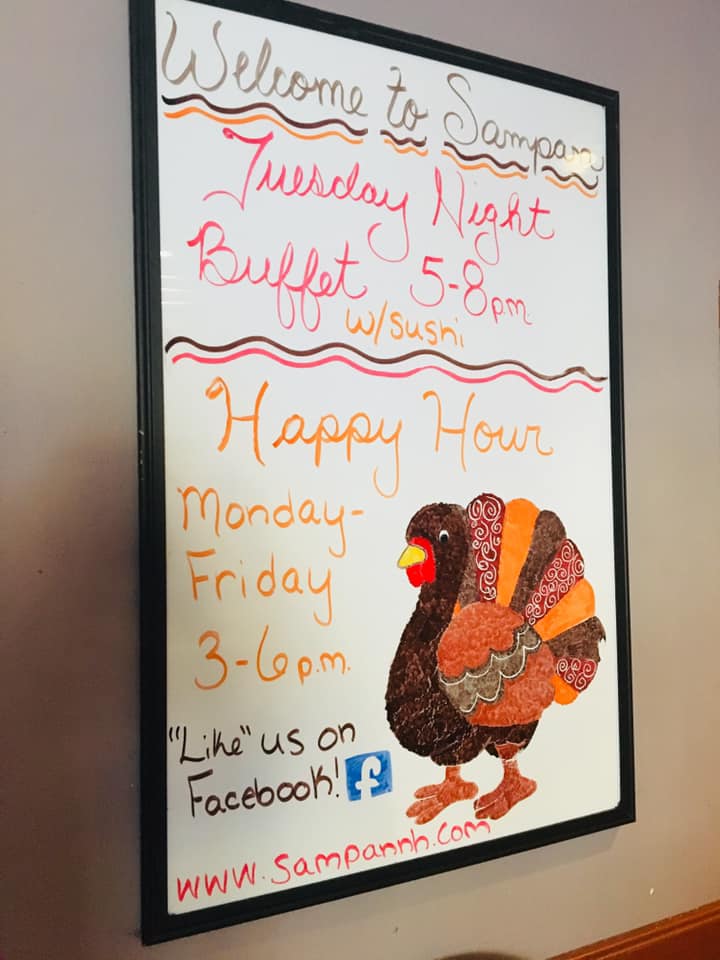 Welcome to Sampan
Tuesday Night
Buffet 5-8p.m.
w/sushi
Happy Hour
Monday-
Friday
3-6p.m.
"Like" us on
Facebook! f
www.sampannh.com